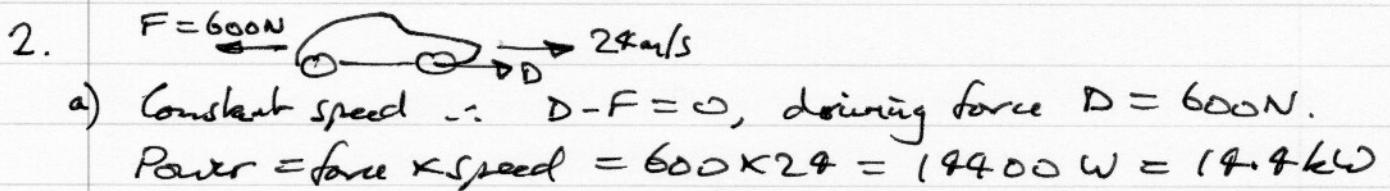 2. F = 600N 24m/s
D
a) Constant speed ∴ D - F = 0, driving force D = 600N.
Power = force × speed = 600 × 24 = 14400 W = 14.4 kW